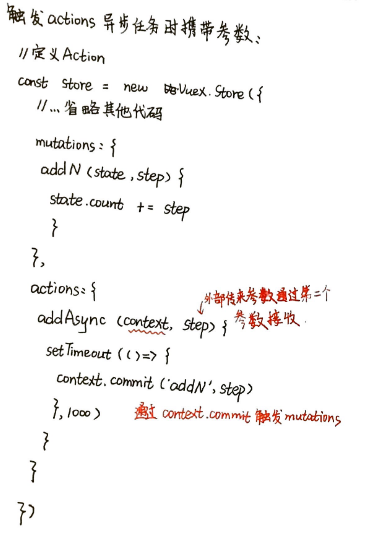 触发actions 异步任务时携带参数:
//定义Action
const store = new Vuex.Store({
//...省略其他代码
mutations:{
addN (state,step) {
state.count += step
}
},
actions:{
外部传来参数通过第二个
参数接收.
addAsync (context, step) {
setTimeout (()=> {
context.commit ('addN',step)
},1000)
通过 context.commit 触发 mutations
}
}
})